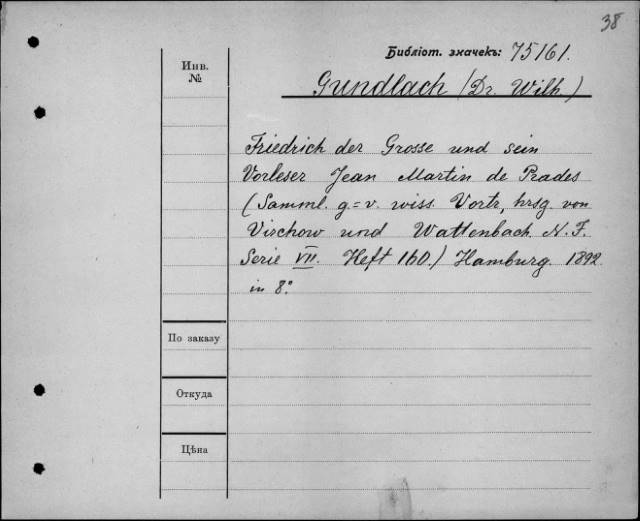 38
Библіот. значекъ: 75161.
Инв.
№
Gundlach (Dr. Wilh.)
Friedrich der Grosse und sein
Vorleser Jean Martin de Prades
(Samml. g=v. wiss. Vortr, hrsg. von
Virchow und Wattenbach. N. F.
Serie VII. Heft 160.) Hamburg. 1892
in 8°.
По заказу
Откуда
Цѣна